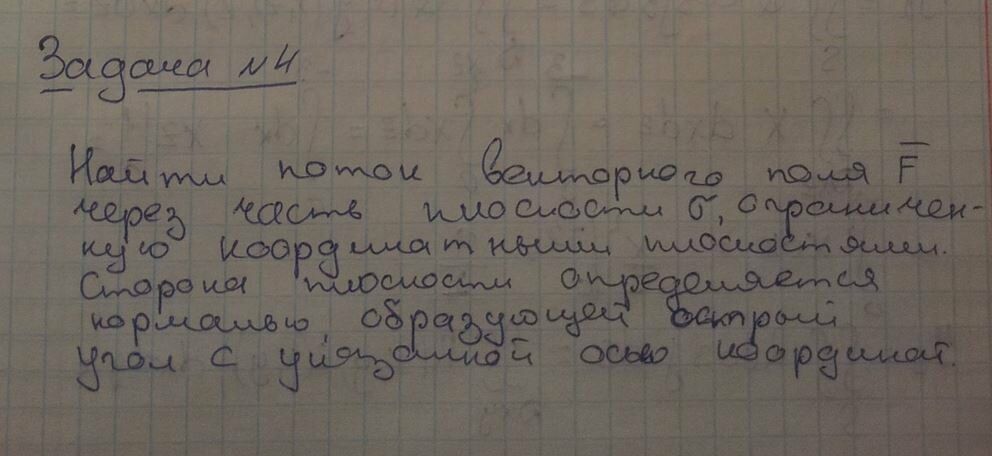 Задача №4
Найти поток векторного поля F̅
через часть плоскости σ, ограничен-
ную координатными плоскостями.
Сторона плоскости определяется
нормалью, образующей острый
угол с указанной осью координат.